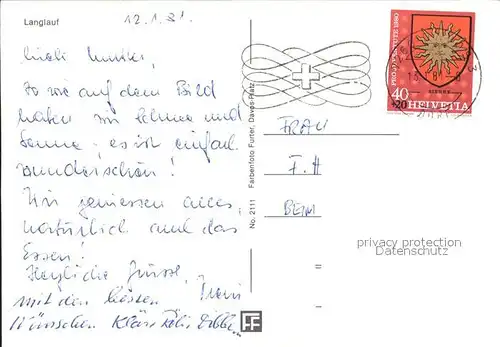 Langlauf
12.1.81.
So wie auf dem Bild
haben wir Schnee und
Sonne, es ist einfach
wunderschön!
Wir geniessen alles,
natürlich auch das
Essen!
Herzliche Grüsse,
mit den besten
Wünschen
No. 2111 Farbenfoto Furter, Davos-Platz
PRO JUVENTUTE 1980
SIERRE
40
+20 HELVETIA
FRAU
F. H
BERN
privacy protection
Datenschutz
FF